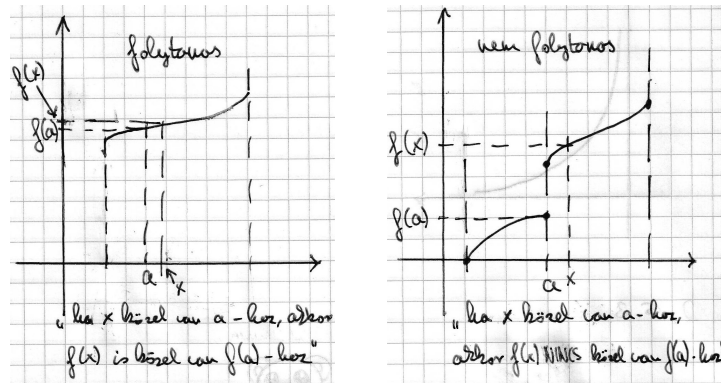 folytonos
f(x)
f(a)
a
x
„ha x közel van a-hoz, akkor
f(x) is közel van f(a)-hoz"
nem folytonos
f(x)
f(a)
a x
„ha x közel van a-hoz,
akkor f(x) NINCS közel van f(a)-hoz